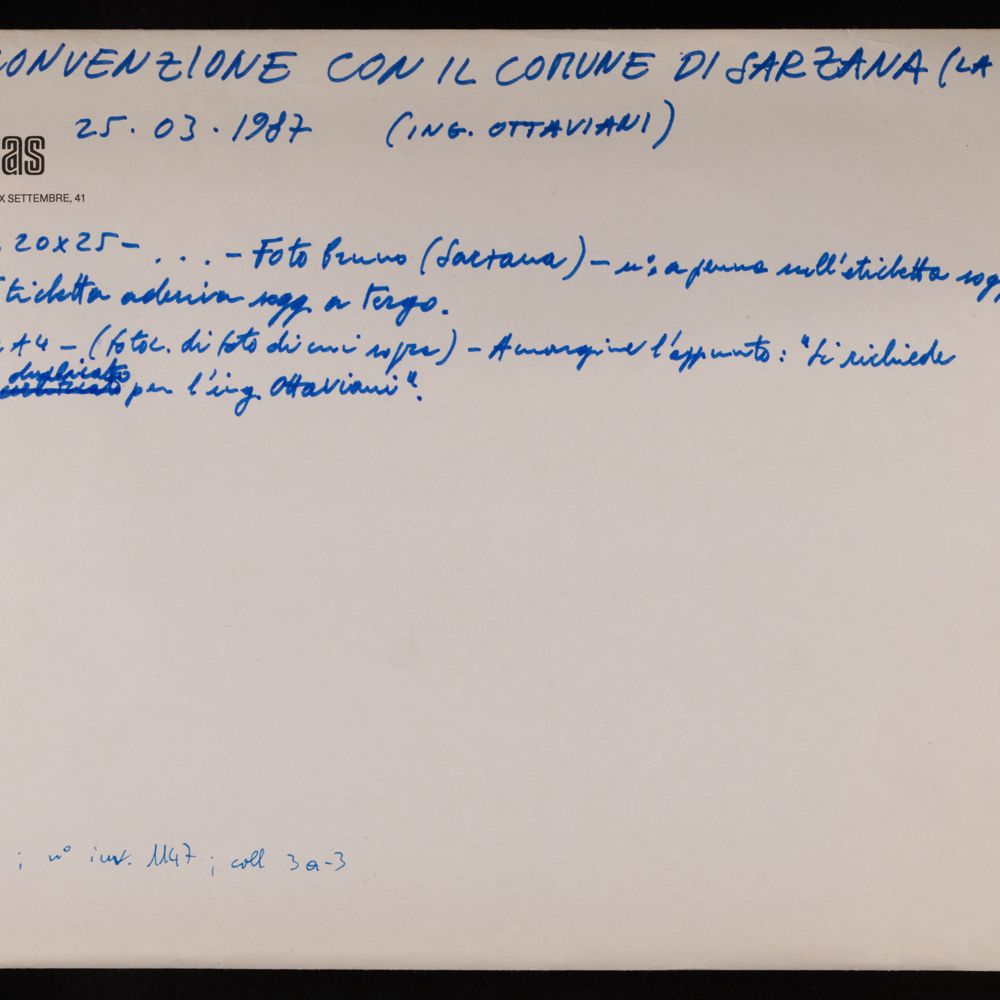 CONVENZIONE CON IL COMUNE DI SARZANA (LA
25.03.1987 (ING. OTTAVIANI)
as
X SETTEMBRE, 41
20x25 - ... - Foto Bruno (Sarzana) - n°; a penna sull'etichetta sogg
etichetta adesiva sogg. a tergo.
A4 - (fotoc. di foto di cui sopra) - A margine l'appunto: "Si richiede
duplicato
per l'ing. Ottaviani".
; n° inv. 1147 ; coll 3a-3